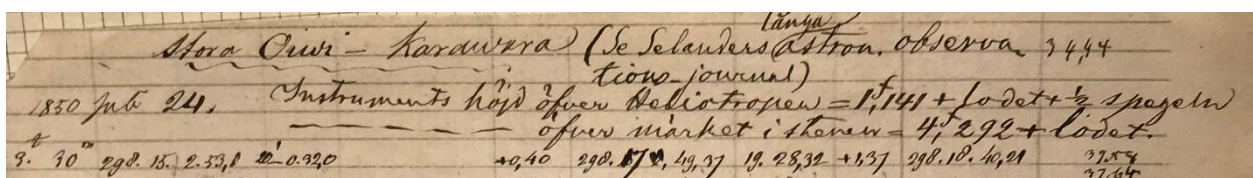 långa
Stora Oiwi - Karawara (Se Selanders astron. observa 34,44
tions-journal)
1850 juli 24. Instruments höjd öfver Heliotropen = 1,f141 + lodet + ½ spegeln
— — — — — öfver märket i stenen = 4,f292 + lodet.
3.t 30m 298. 15. 2.53,8 - 0.32,0 +0,40 298. 17. 49,37 19. 28,32 +1,37 298. 18. 40,21 39.58
37.64